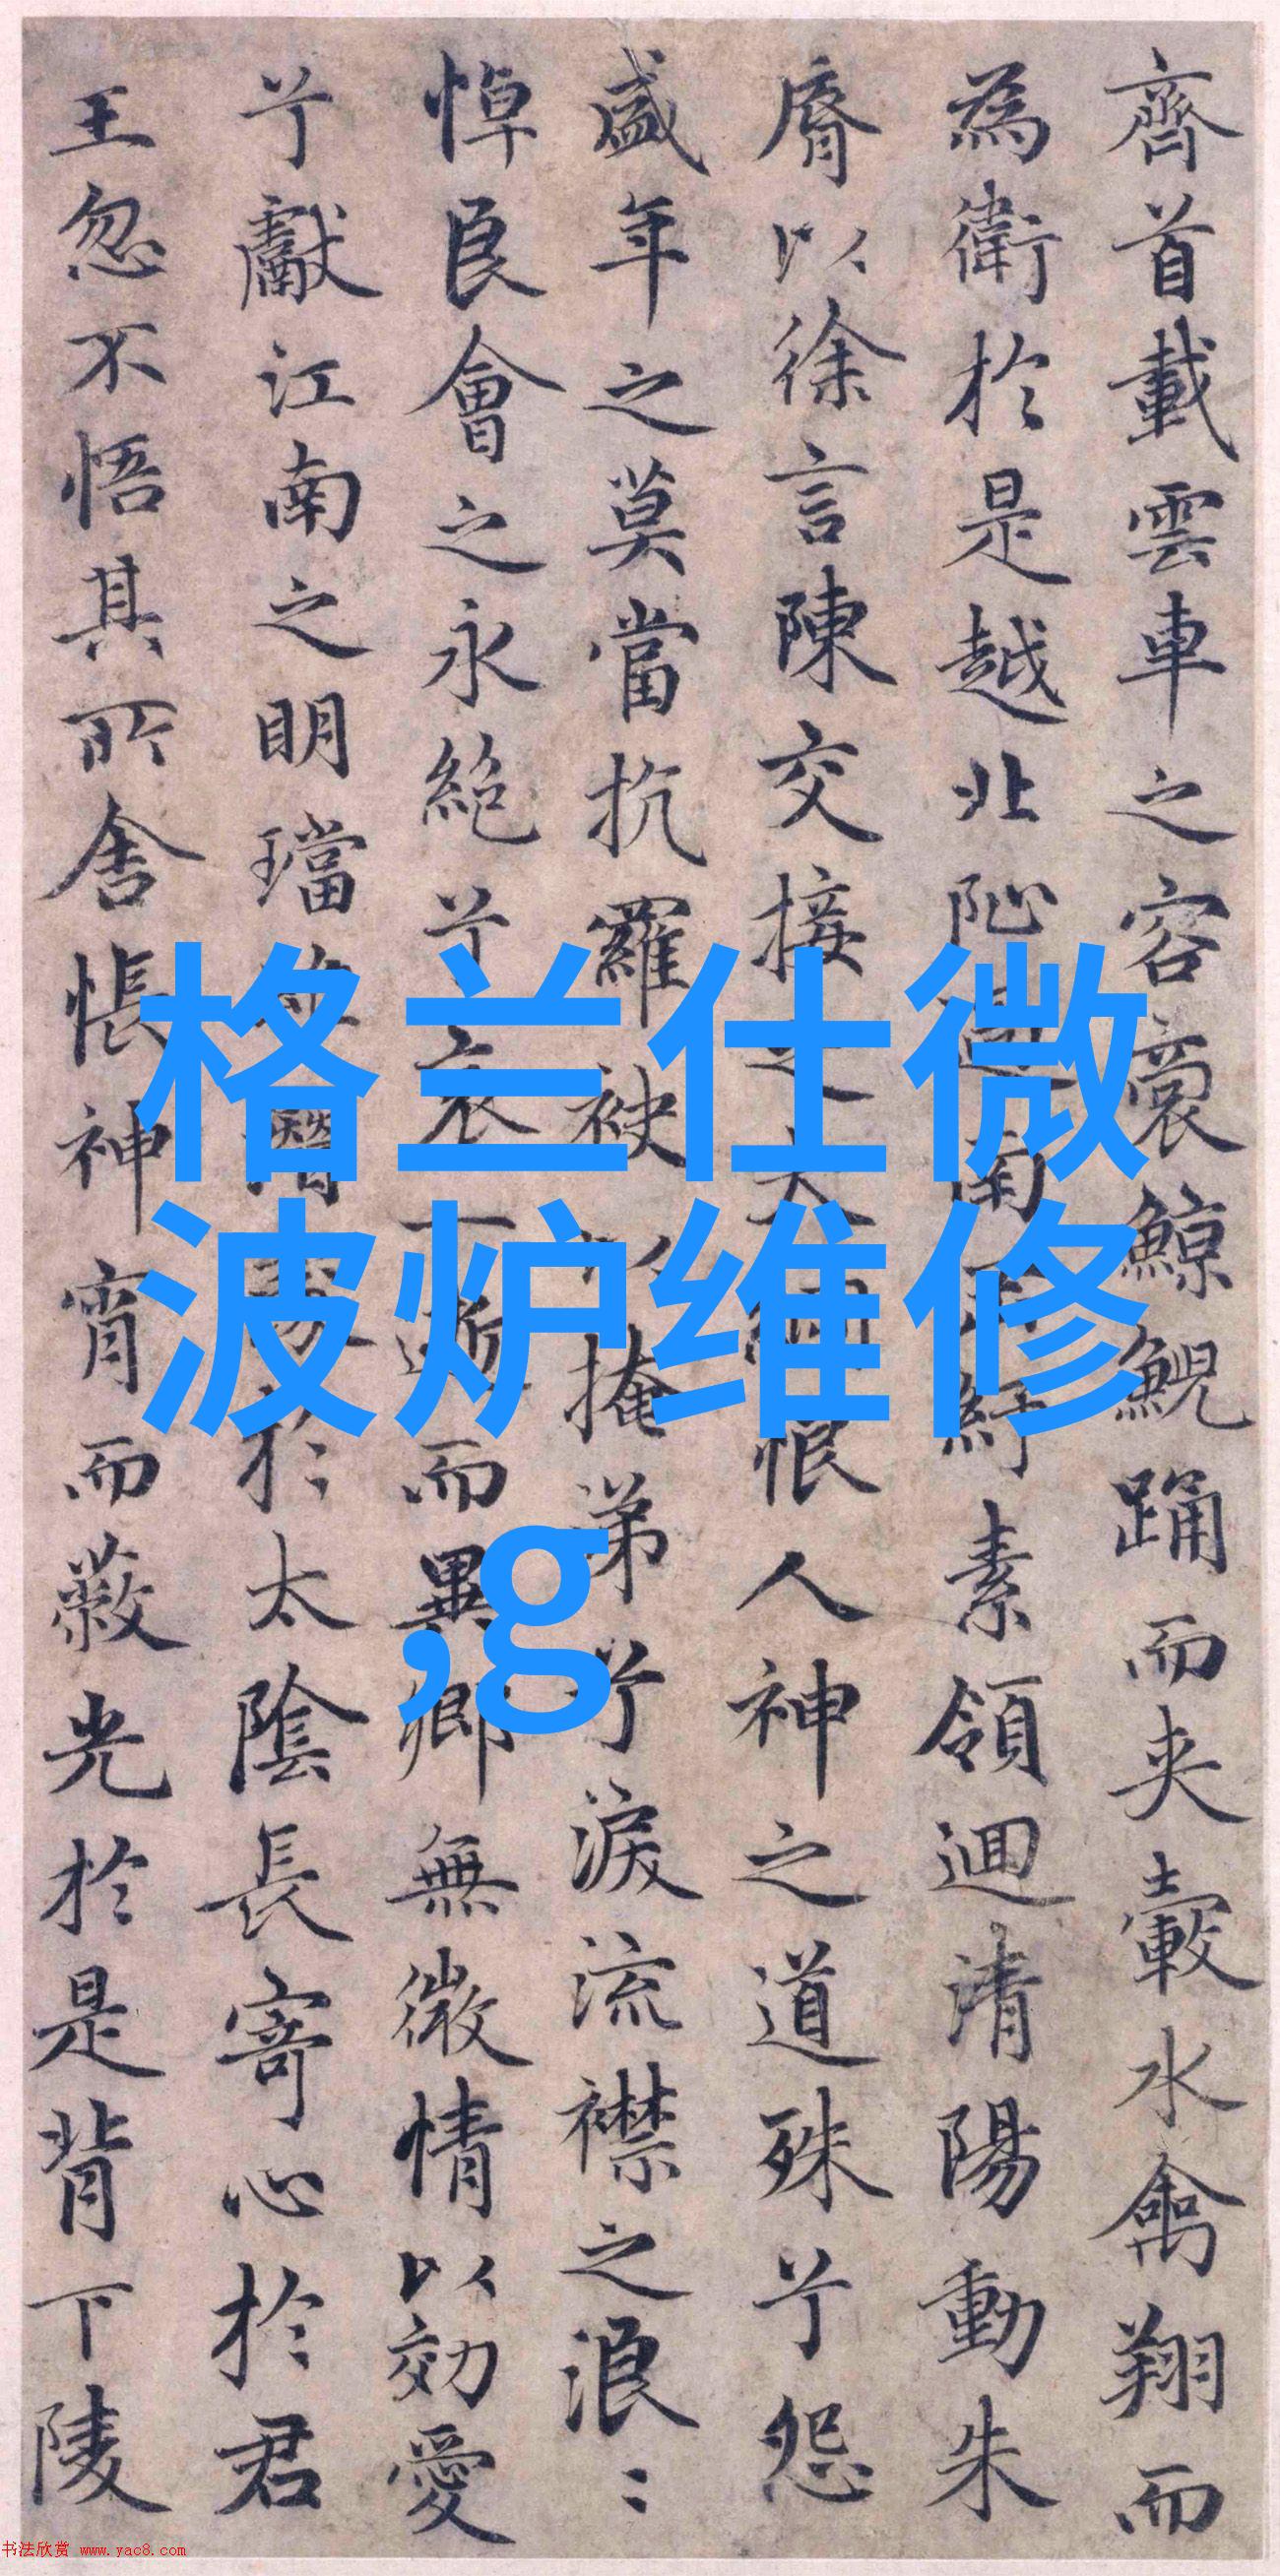 齊首載雲車之容裔鯨鯢踊而夾轂水禽翔而
為衛於是越北沚過南紆素領迴清陽動朱
脣以徐言陳交接之大綱恨人神之道殊兮怨
盛年之莫當抗羅袂以掩涕兮淚流襟之浪〻
悼良會之永絕兮哀一逝而異鄉無微情以効愛
兮獻江南之明璫雖潛處於太陰長寄心於君
王忽不悟其所舍悵神宵而蔽光於是背下陵
格兰仕微
波炉维修
,g
书法欣赏 www.yac8.com